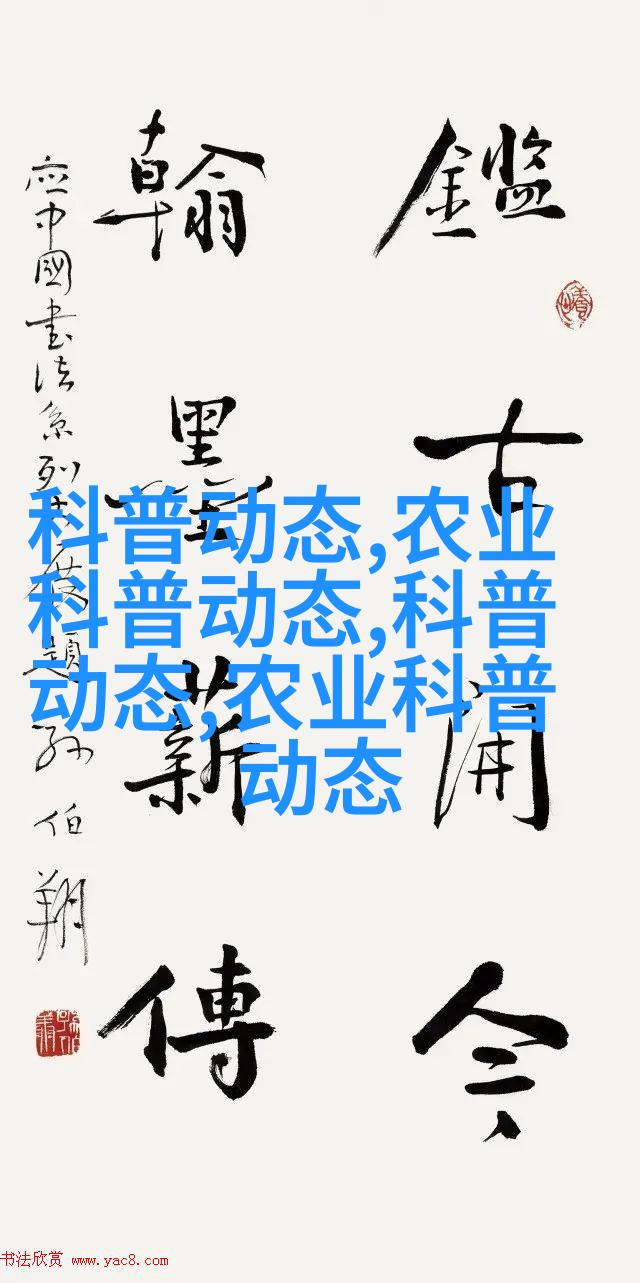 鑑古開今
翰墨薪傳
應中國書法系列大展題 孫伯翔
科普动态,农业
科普动态,科普
动态,农业科普
动态
书法欣赏 www.yac8.com